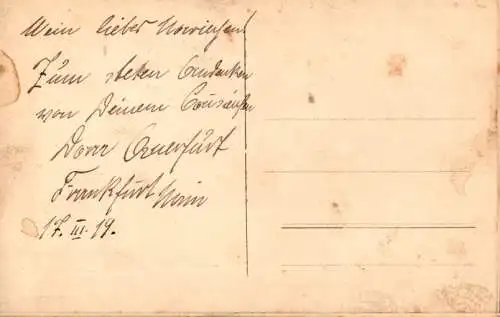 Mein lieber
Zum steten Andenken
von Deinem Cousinchen
Dora Querfurt
Frankfurt Main
17. III. 19.